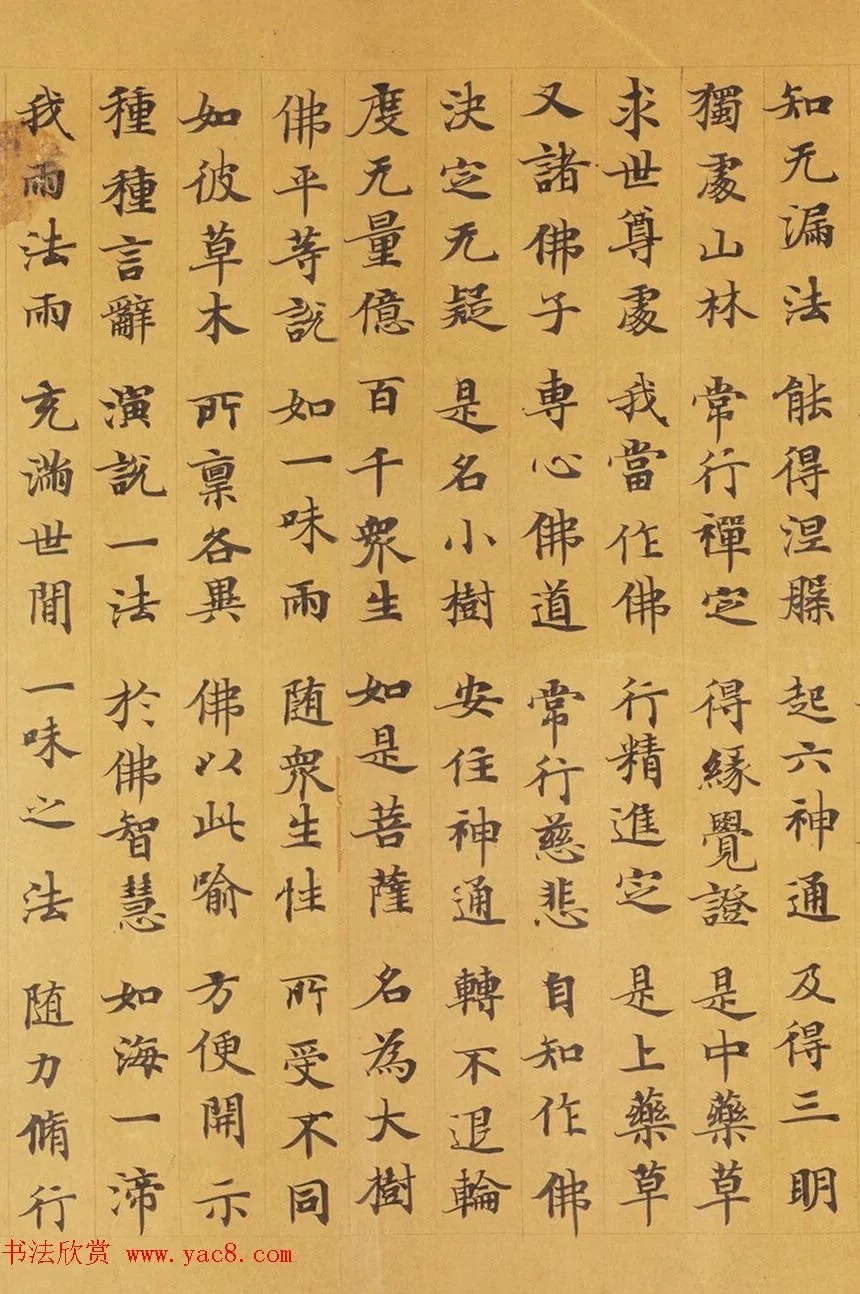 知无漏法 能得涅槃 起六神通 及得三明
獨處山林 常行禪定 得緣覺證 是中藥草
求世尊處 我當作佛 行精進定 是上藥草
又諸佛子 專心佛道 常行慈悲 自知作佛
決定无疑 是名小樹 安住神通 轉不退輪
度无量億 百千衆生 如是菩薩 名為大樹
佛平等說 如一味雨 随衆生性 所受不同
如彼草木 所稟各異 佛以此喻 方便開示
種種言辭 演說一法 於佛智慧 如海一渧
我雨法雨 充滿世間 一味之法 随力脩行
书法欣赏 www.yac8.com